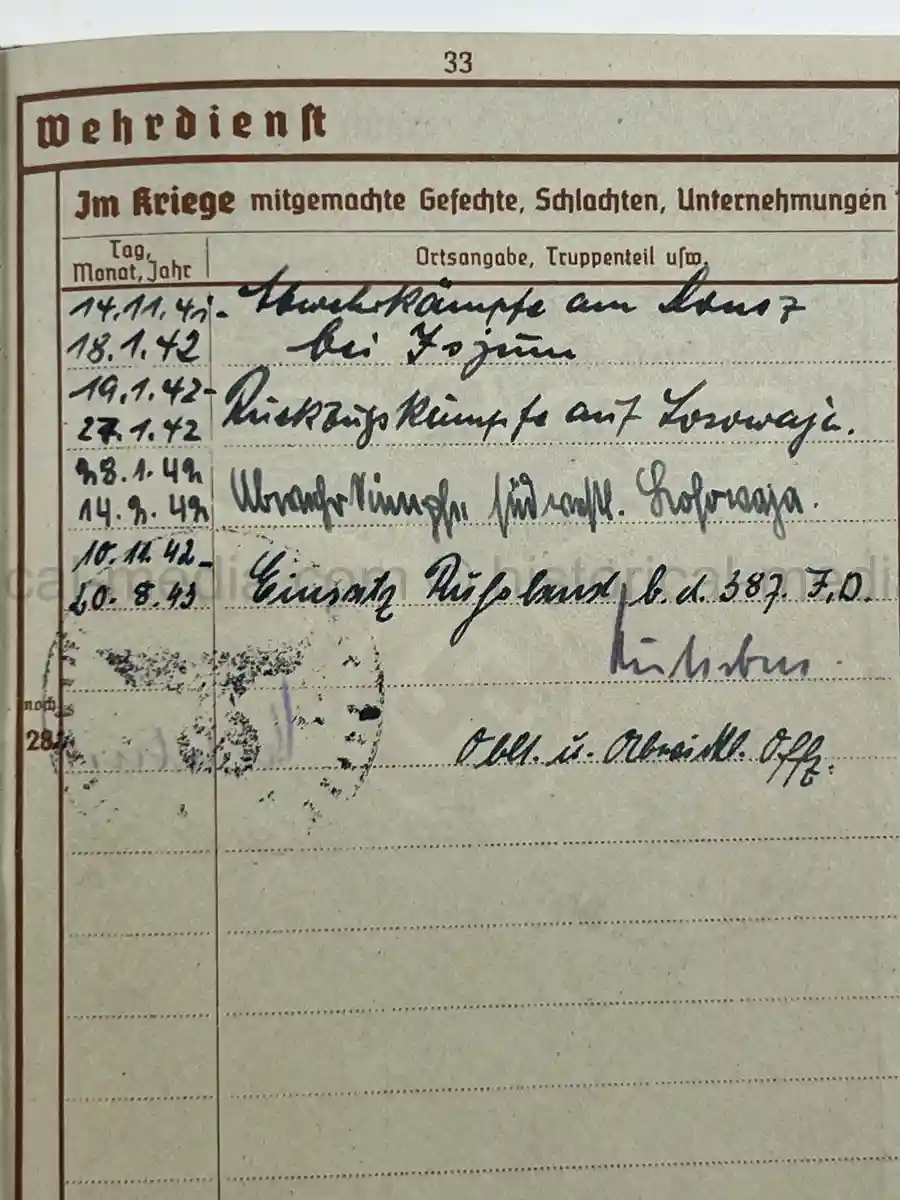 33
Wehrdienst
Im Kriege mitgemachte Gefechte, Schlachten, Unternehmungen
Tag,
Monat, Jahr
Ortsangabe, Truppenteil usw.
14.11.41- Abwehrkämpfe am Donez
18.1.42 bei Isjum
19.1.42- Rückzugskämpfe auf Losowaja.
27.1.42
28.1.42 Abwehrkämpfe südwestl. Losowaja.
14.2.42
10.12.42- Einsatz Rußland b. d. 387. I.D.
20.8.43
noch
28
Oblt. u. Abwickl. Offz.